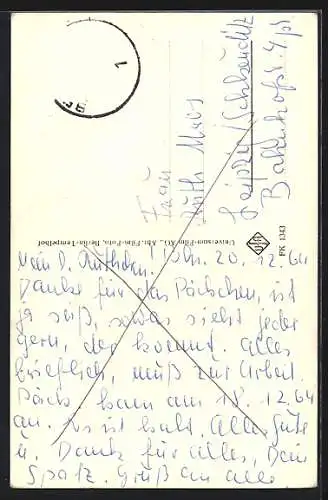 Frau
Ruth Maos
Leipzig/Schkeuditz
Bahnhofstr.
Universum-Film AG., Abt. Film-Foto, Berlin-Tempelhof
FK 1343
Mein l. Ruthchen! 20. 12. 64
Danke für das Päckchen, ist
ja süß, sowas sieht jeder
gern, der kommt. Alles
brieflich, muß zur Arbeit.
Päck. kam am 18. 12. 64
an. Es ist kalt. Alles Gute
u. Dank für alles, Dein
Spatz. Gruß an alle.